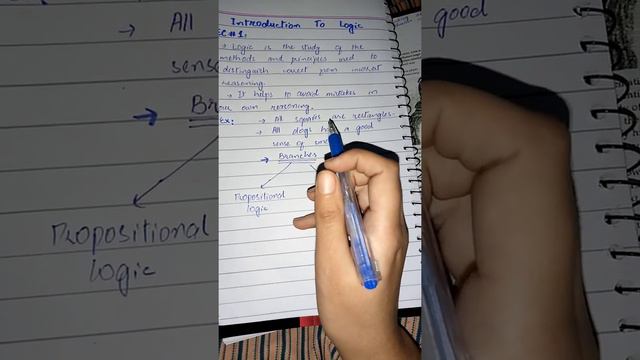 Introduction To Logic
EC#1:
→ Logic is the study of the
methods and principles used to
distinguish correct from incorrect
reasoning.
→ It helps to avoid mistakes in
our own reasoning.
Ex: → All squares are rectangles.
→ All dogs have a good
sense of
→ Branches
Propositional
logic
→ All
sense
→ Br
Propositional
logic
good